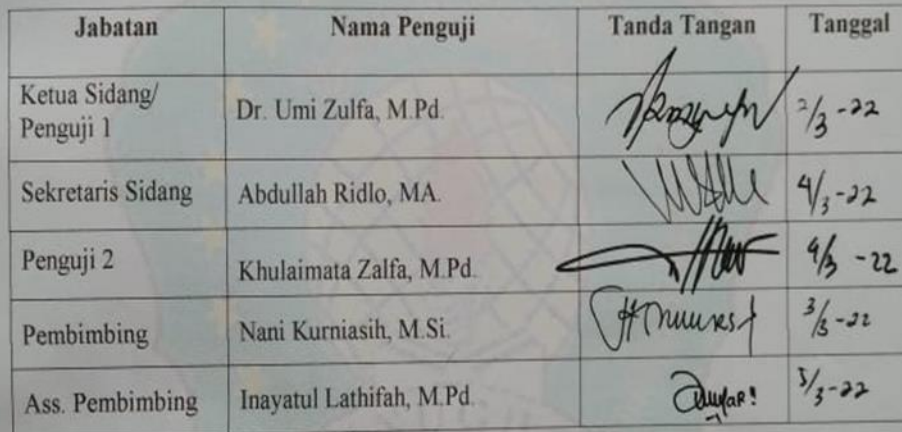 Jabatan Nama Penguji Tanda Tangan Tanggal
Ketua Sidang/
Penguji 1 Dr. Umi Zulfa, M.Pd. 2/3 -22
Sekretaris Sidang Abdullah Ridlo, MA. 4/3 -22
Penguji 2 Khulaimata Zalfa, M.Pd. 4/3 -22
Pembimbing Nani Kurniasih, M.Si. 3/3 -22
Ass. Pembimbing Inayatul Lathifah, M.Pd. /3 -22